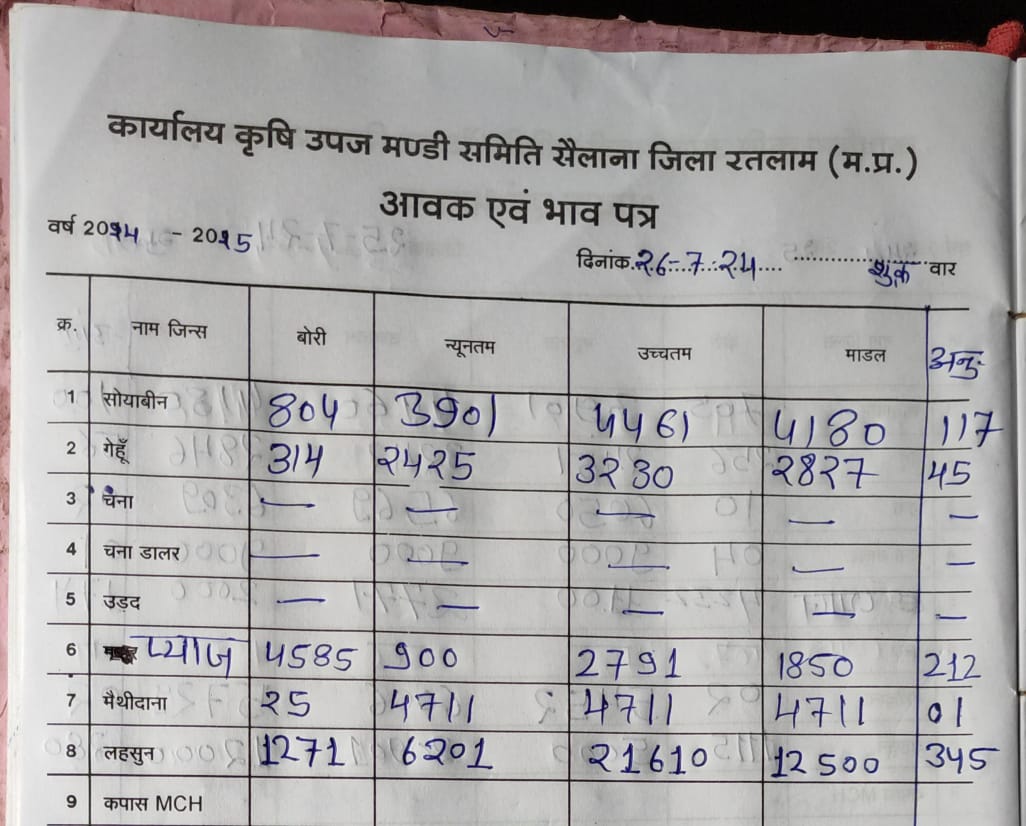 कार्यालय कृषि उपज मण्डी समिति सैलाना जिला रतलाम (म.प्र.)
आवक एवं भाव पत्र
वर्ष 2024 - 2025
दिनांक 26-7-24 शुक्र वार
क्र. नाम जिन्स बोरी न्यूनतम उच्चतम माडल अनु.
1 सोयाबीन 804 3901 4461 4180 117
2 गेहूँ 314 2425 3230 2827 45
3 चना — — — — —
4 चना डालर — — — — —
5 उड़द — — — — —
6 प्याज 4585 900 2791 1850 212
7 मैथीदाना 25 4711 4711 4711 01
8 लहसुन 1271 6201 21610 12500 345
9 कपास MCH